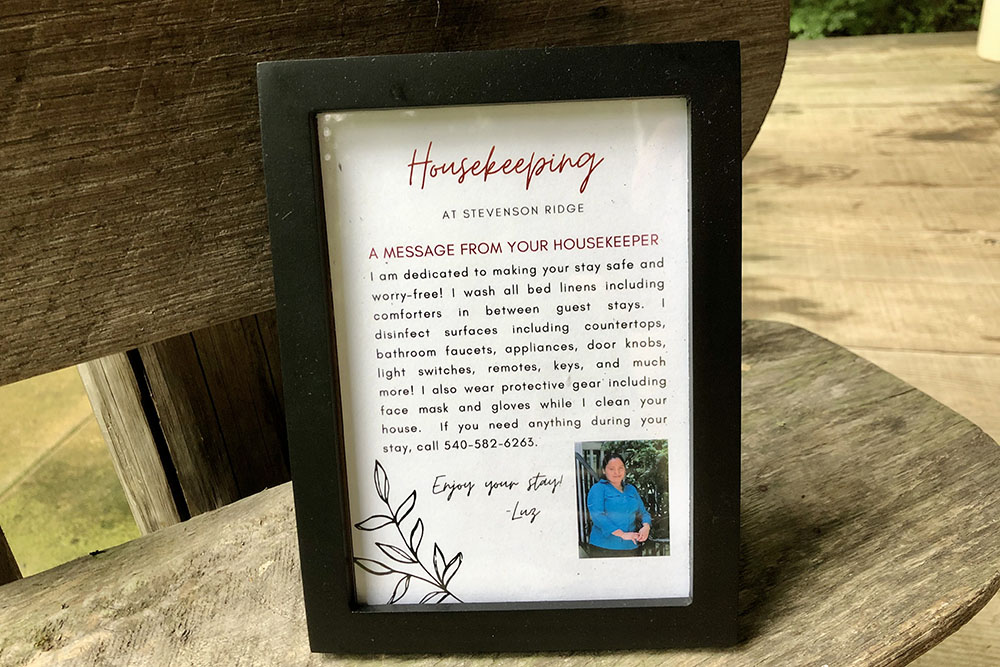 Housekeeping
AT STEVENSON RIDGE
A MESSAGE FROM YOUR HOUSEKEEPER
I am dedicated to making your stay safe and
worry-free! I wash all bed linens including
comforters in between guest stays. I
disinfect surfaces including countertops,
bathroom faucets, appliances, door knobs,
light switches, remotes, keys, and much
more! I also wear protective gear including
face mask and gloves while I clean your
house. If you need anything during your
stay, call 540-582-6263.
Enjoy your stay!
-Luz